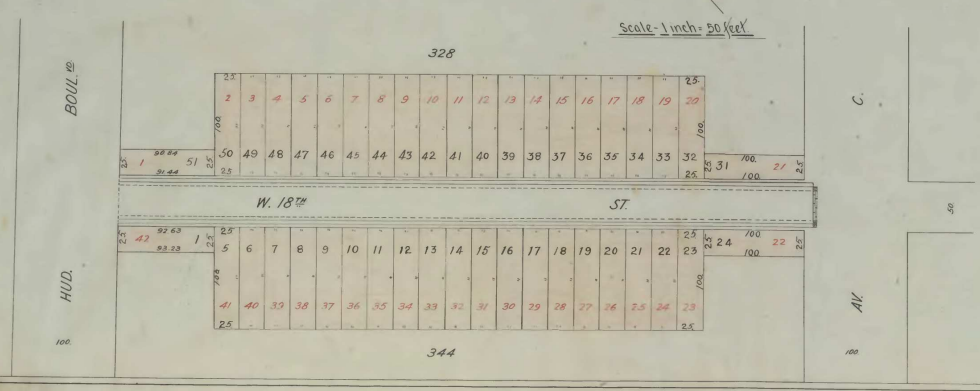 Scale - 1 inch = 50 feet.
328
BOUL.VD.
C.
25. 25.
2 3 4 5 6 7 8 9 10 11 12 13 14 15 16 17 18 19 20
100. 100.
50 49 48 47 46 45 44 43 42 41 40 39 38 37 36 35 34 33 32
25. 25.
25. 1 90.84 51 25
91.44
25 31 100. 21 25
100.
W. 18TH ST.
50
25. 42 92.63 1 25
93.23
25 24 100. 22 25
100.
25 25
5 6 7 8 9 10 11 12 13 14 15 16 17 18 19 20 21 22 23
100. 100.
41 40 39 38 37 36 35 34 33 32 31 30 29 28 27 26 25 24 23
25. 25.
HUD.
AV.
100.
344
100.